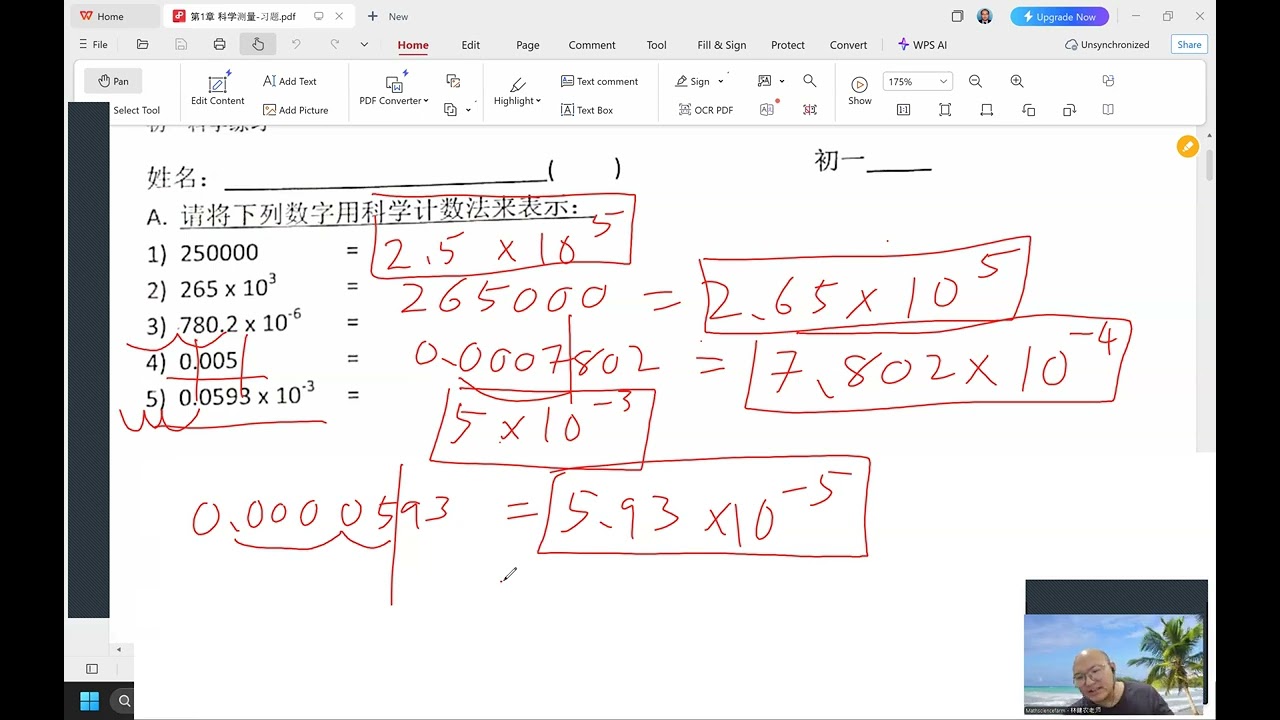 Home 第1章 科学测量-习题.pdf New Upgrade Now
File Home Edit Page Comment Tool Fill & Sign Protect Convert WPS AI Unsynchronized Share
Pan Edit Content Add Text PDF Converter Highlight Text comment Sign Show 175%
Select Tool Add Picture Text Box OCR PDF
初一科学练习
姓名：__________( ) 初一____
A. 请将下列数字用科学计数法来表示：
1) 250000 = 2.5 x 10⁵
2) 265 x 10³ = 265000 = 2.65 x 10⁵
3) 780.2 x 10⁻⁶ = 0.0007802 = 7.802 x 10⁻⁴
4) 0.005 = 5 x 10⁻³
5) 0.0593 x 10⁻³ =
0.0000593 = 5.93 x 10⁻⁵